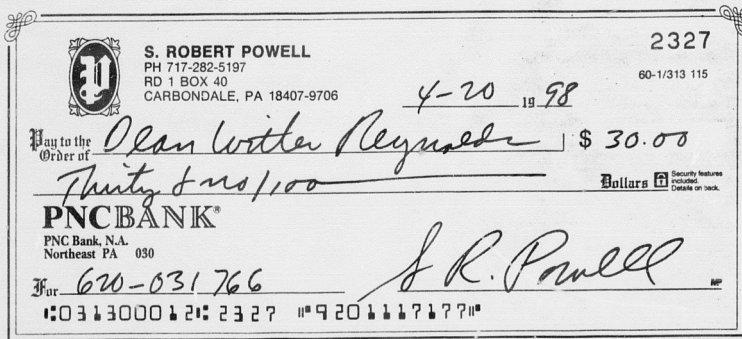 P
S. ROBERT POWELL
PH 717-282-5197
RD 1 BOX 40
CARBONDALE, PA 18407-9706
2327
60-1/313 115
4-20 19 98
Pay to the Order of Dean Witter Reynolds $ 30.00
Thirty & no/100 Dollars Security features included. Details on back.
PNCBANK®
PNC Bank, N.A.
Northeast PA 030
For 620-031766 S R. Powell MP
⑆031300012⑆ 2327 ⑈9201117177⑈